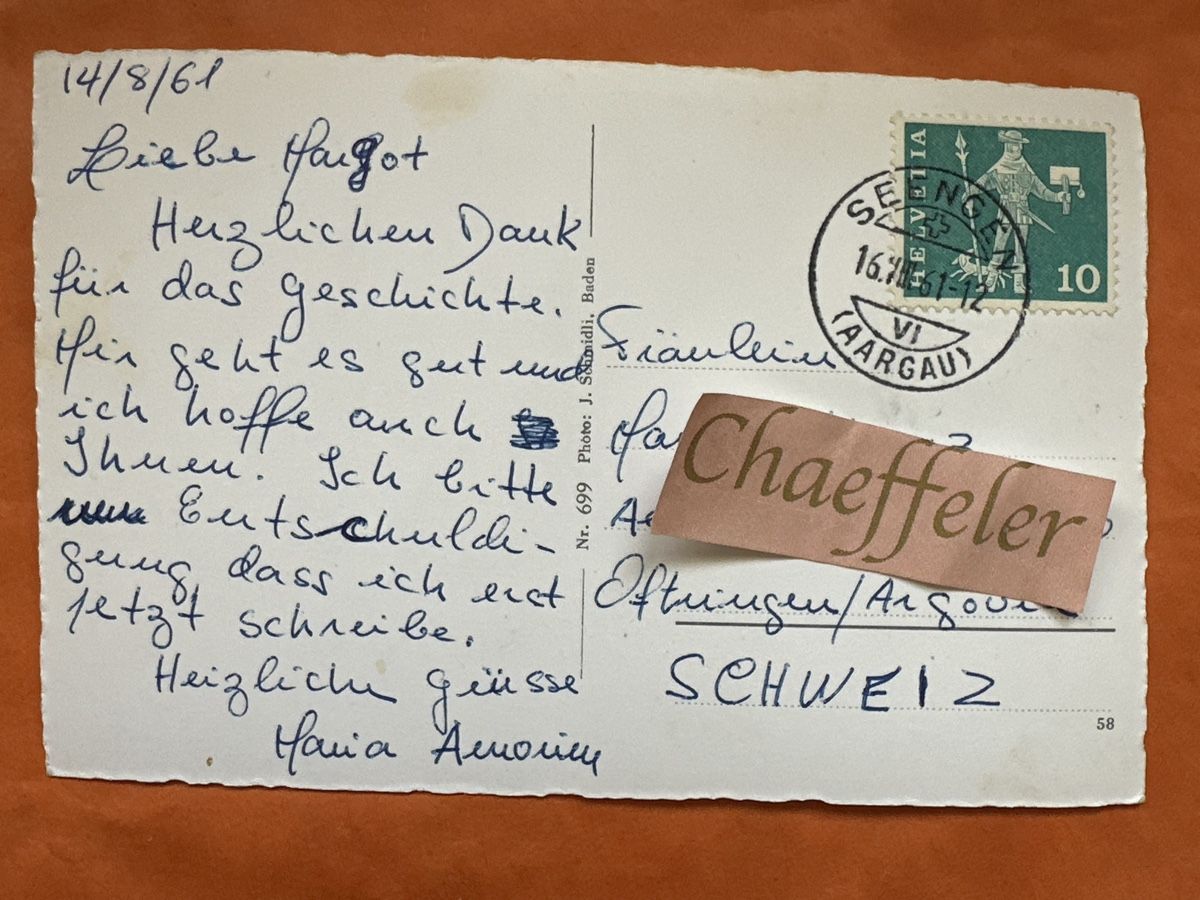 14/8/61
Liebe Margot
Herzlichen Dank
für das geschichte.
Mir geht es gut und
ich hoffe auch
Ihnen. Ich bitte
Entschuldi-
gung dass ich erst
jetzt schreibe.
Herzliche grüsse
Maria Amorim
Nr. 699 Photo: J. Schmidli, Baden
HELVETIA
10
SEENGEN
16.VIII.61-12
VI
(AARGAU)
Fräulein
Chaeffeler
Oftringen/Argovie
SCHWEIZ
58